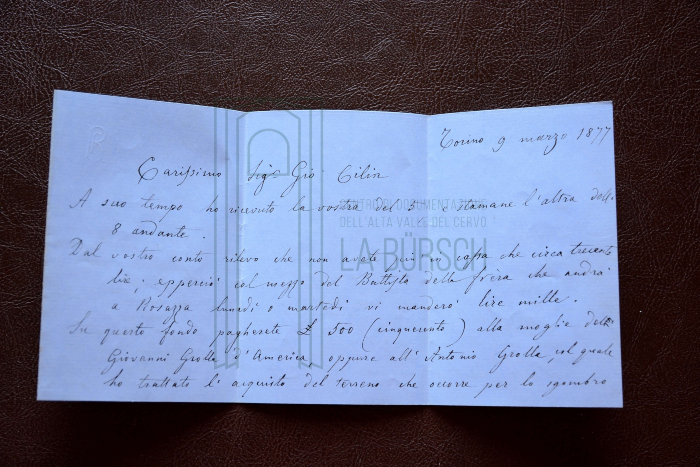 Torino 9 marzo 1877
Carissimo Sigr Gio Cilin
A suo tempo ho ricevuto la vostra del 5 e stamane l'altra delli
8 andante.
Dal vostro conto rilevo che non avete più in cassa che circa trecento
lire; epperciò col mezzo del Battista della frera che andrà
a Rosazza lunedì o martedì vi manderò lire mille.
Su questo fondo pagherete £ 500 (cinquecento) alla moglie delli
Giovanni Grolla d'America oppure all'Antonio Grolla, col quale
ho trattato l'acquisto del terreno che occorre per lo sgombro
CENTRO DI DOCUMENTAZIONE
DELL'ALTA VALLE DEL CERVO
LA BÜRSCH